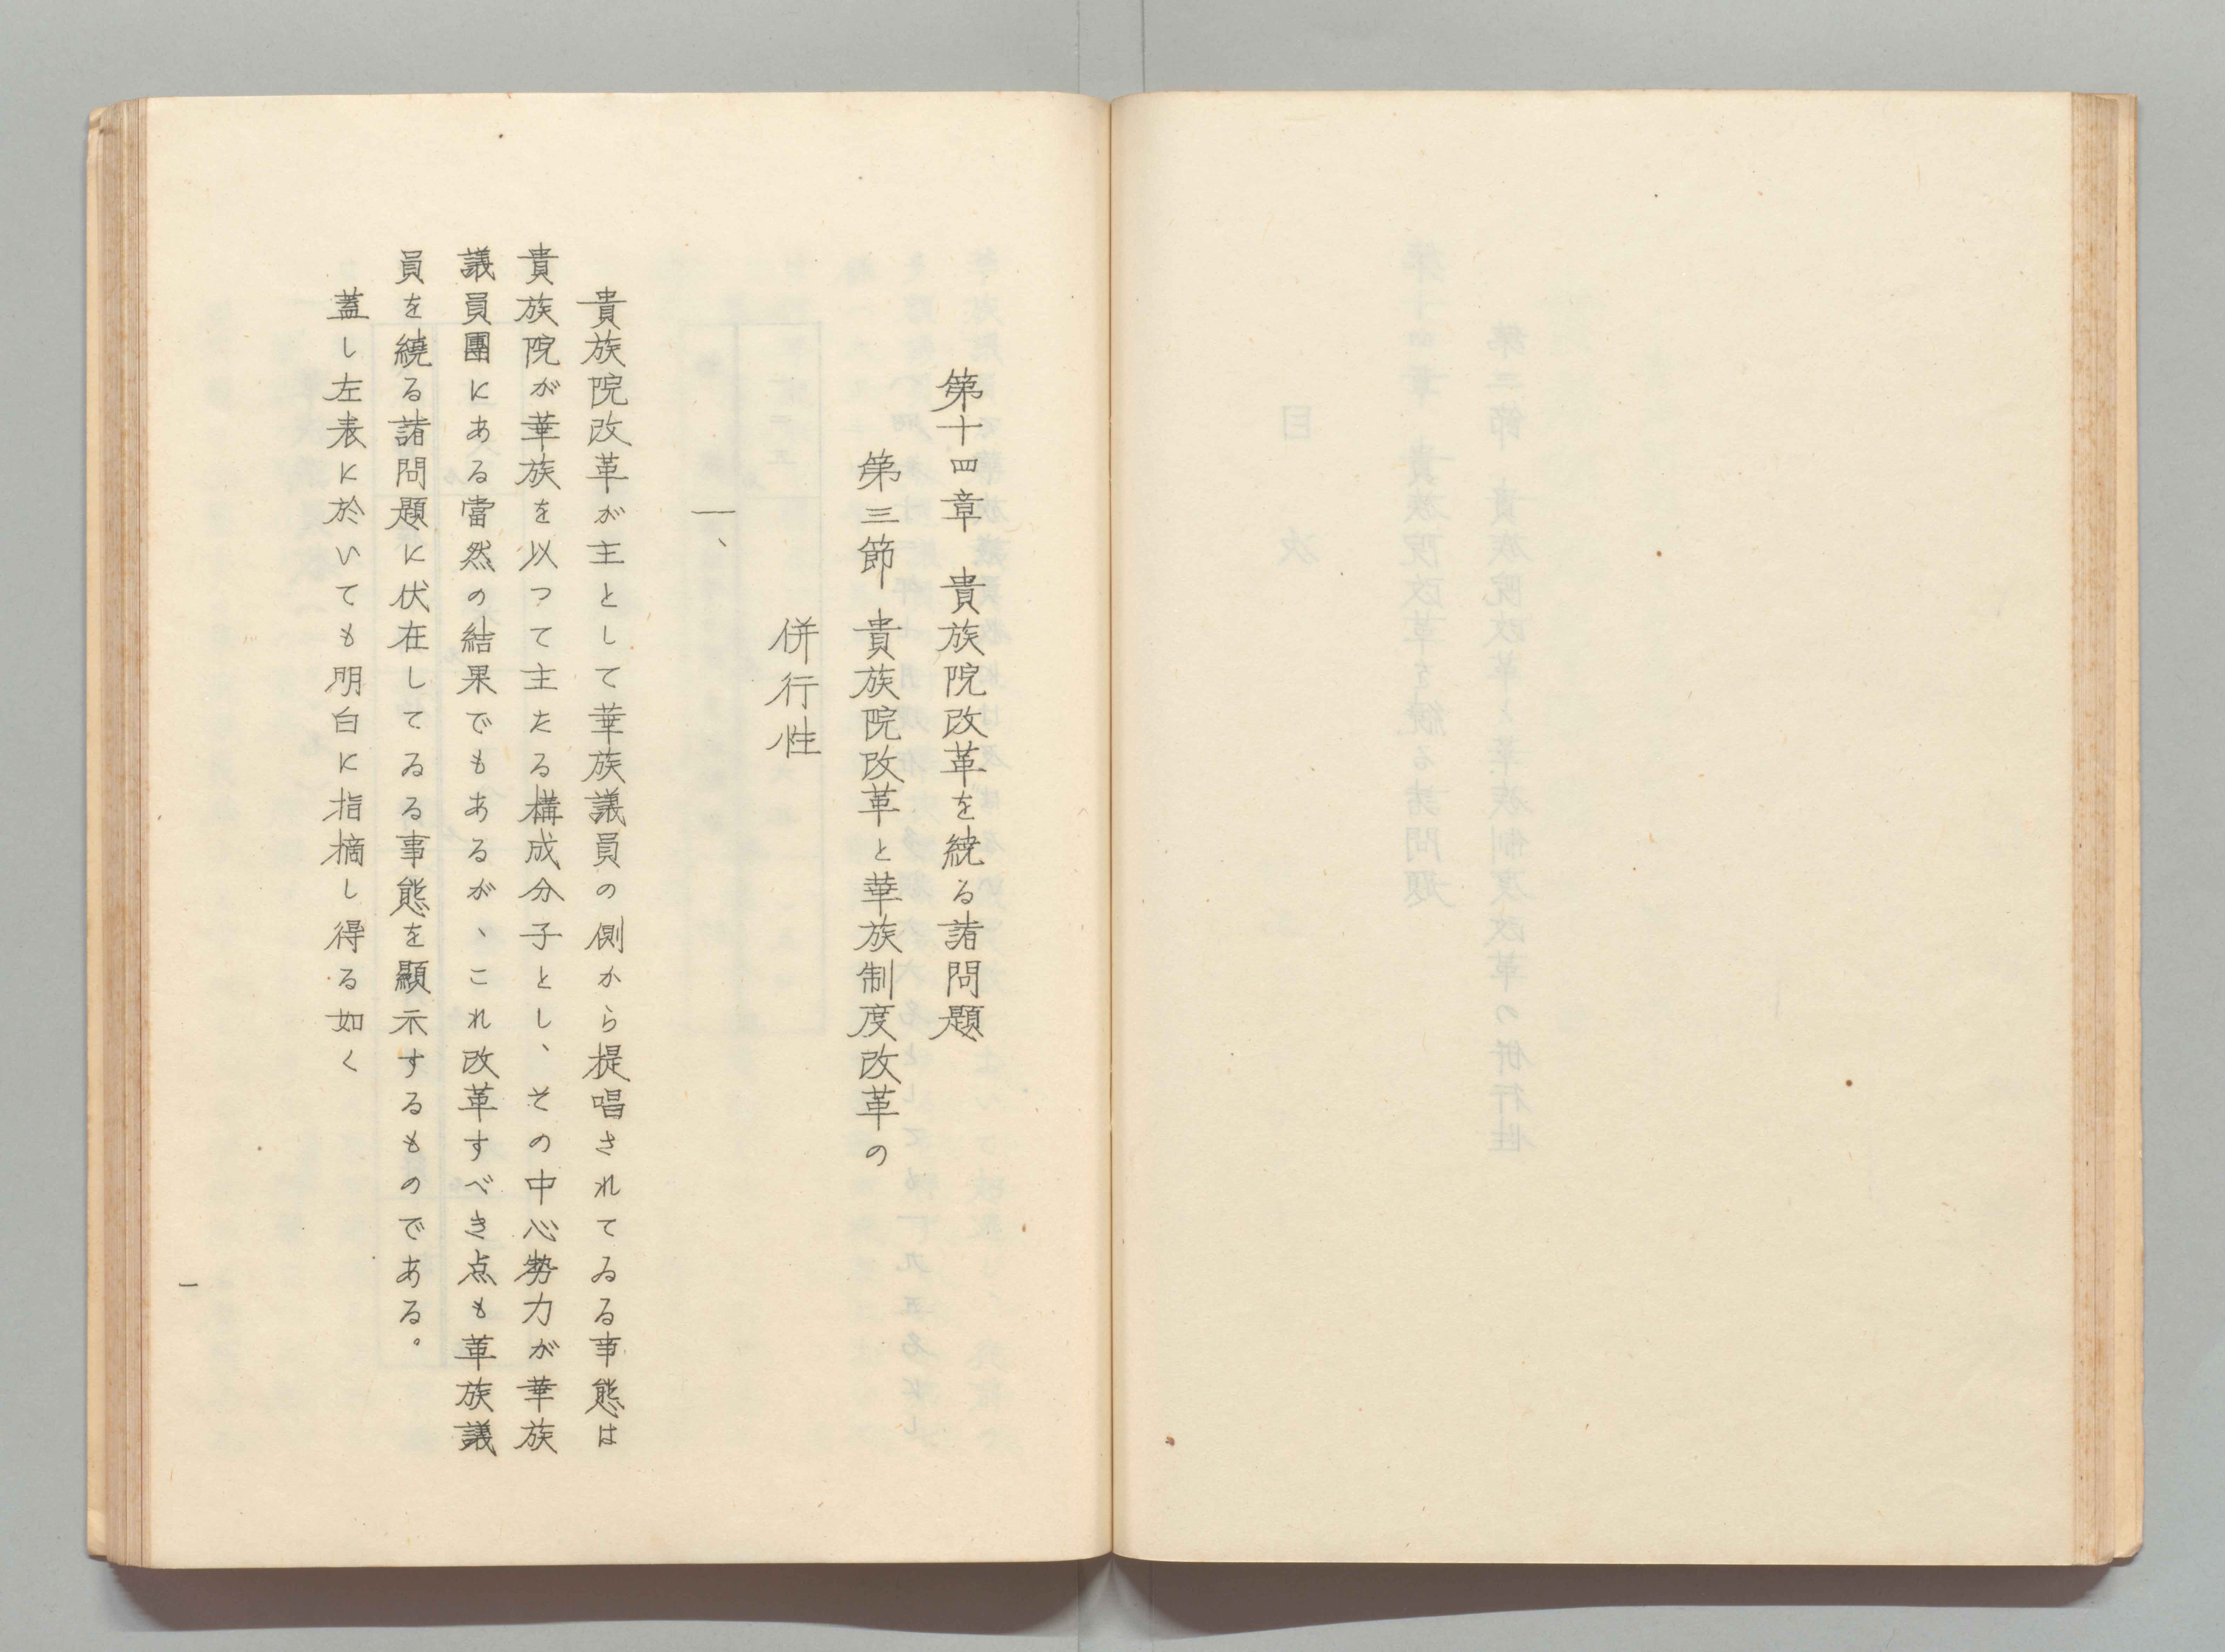 第十四章　貴族院改革を繞る諸問題
第三節　貴族院改革と華族制度改革の
併行性
一、
貴族院改革が主として華族議員の側から提唱されてゐる事態は
貴族院が華族を以つて主たる構成分子とし、その中心勢力が華族
議員團にある當然の結果でもあるが、これ改革すべき点も華族議
員を繞る諸問題に伏在してゐる事態を顯示するものである。
蓋し左表に於いても明白に指摘し得る如く
一